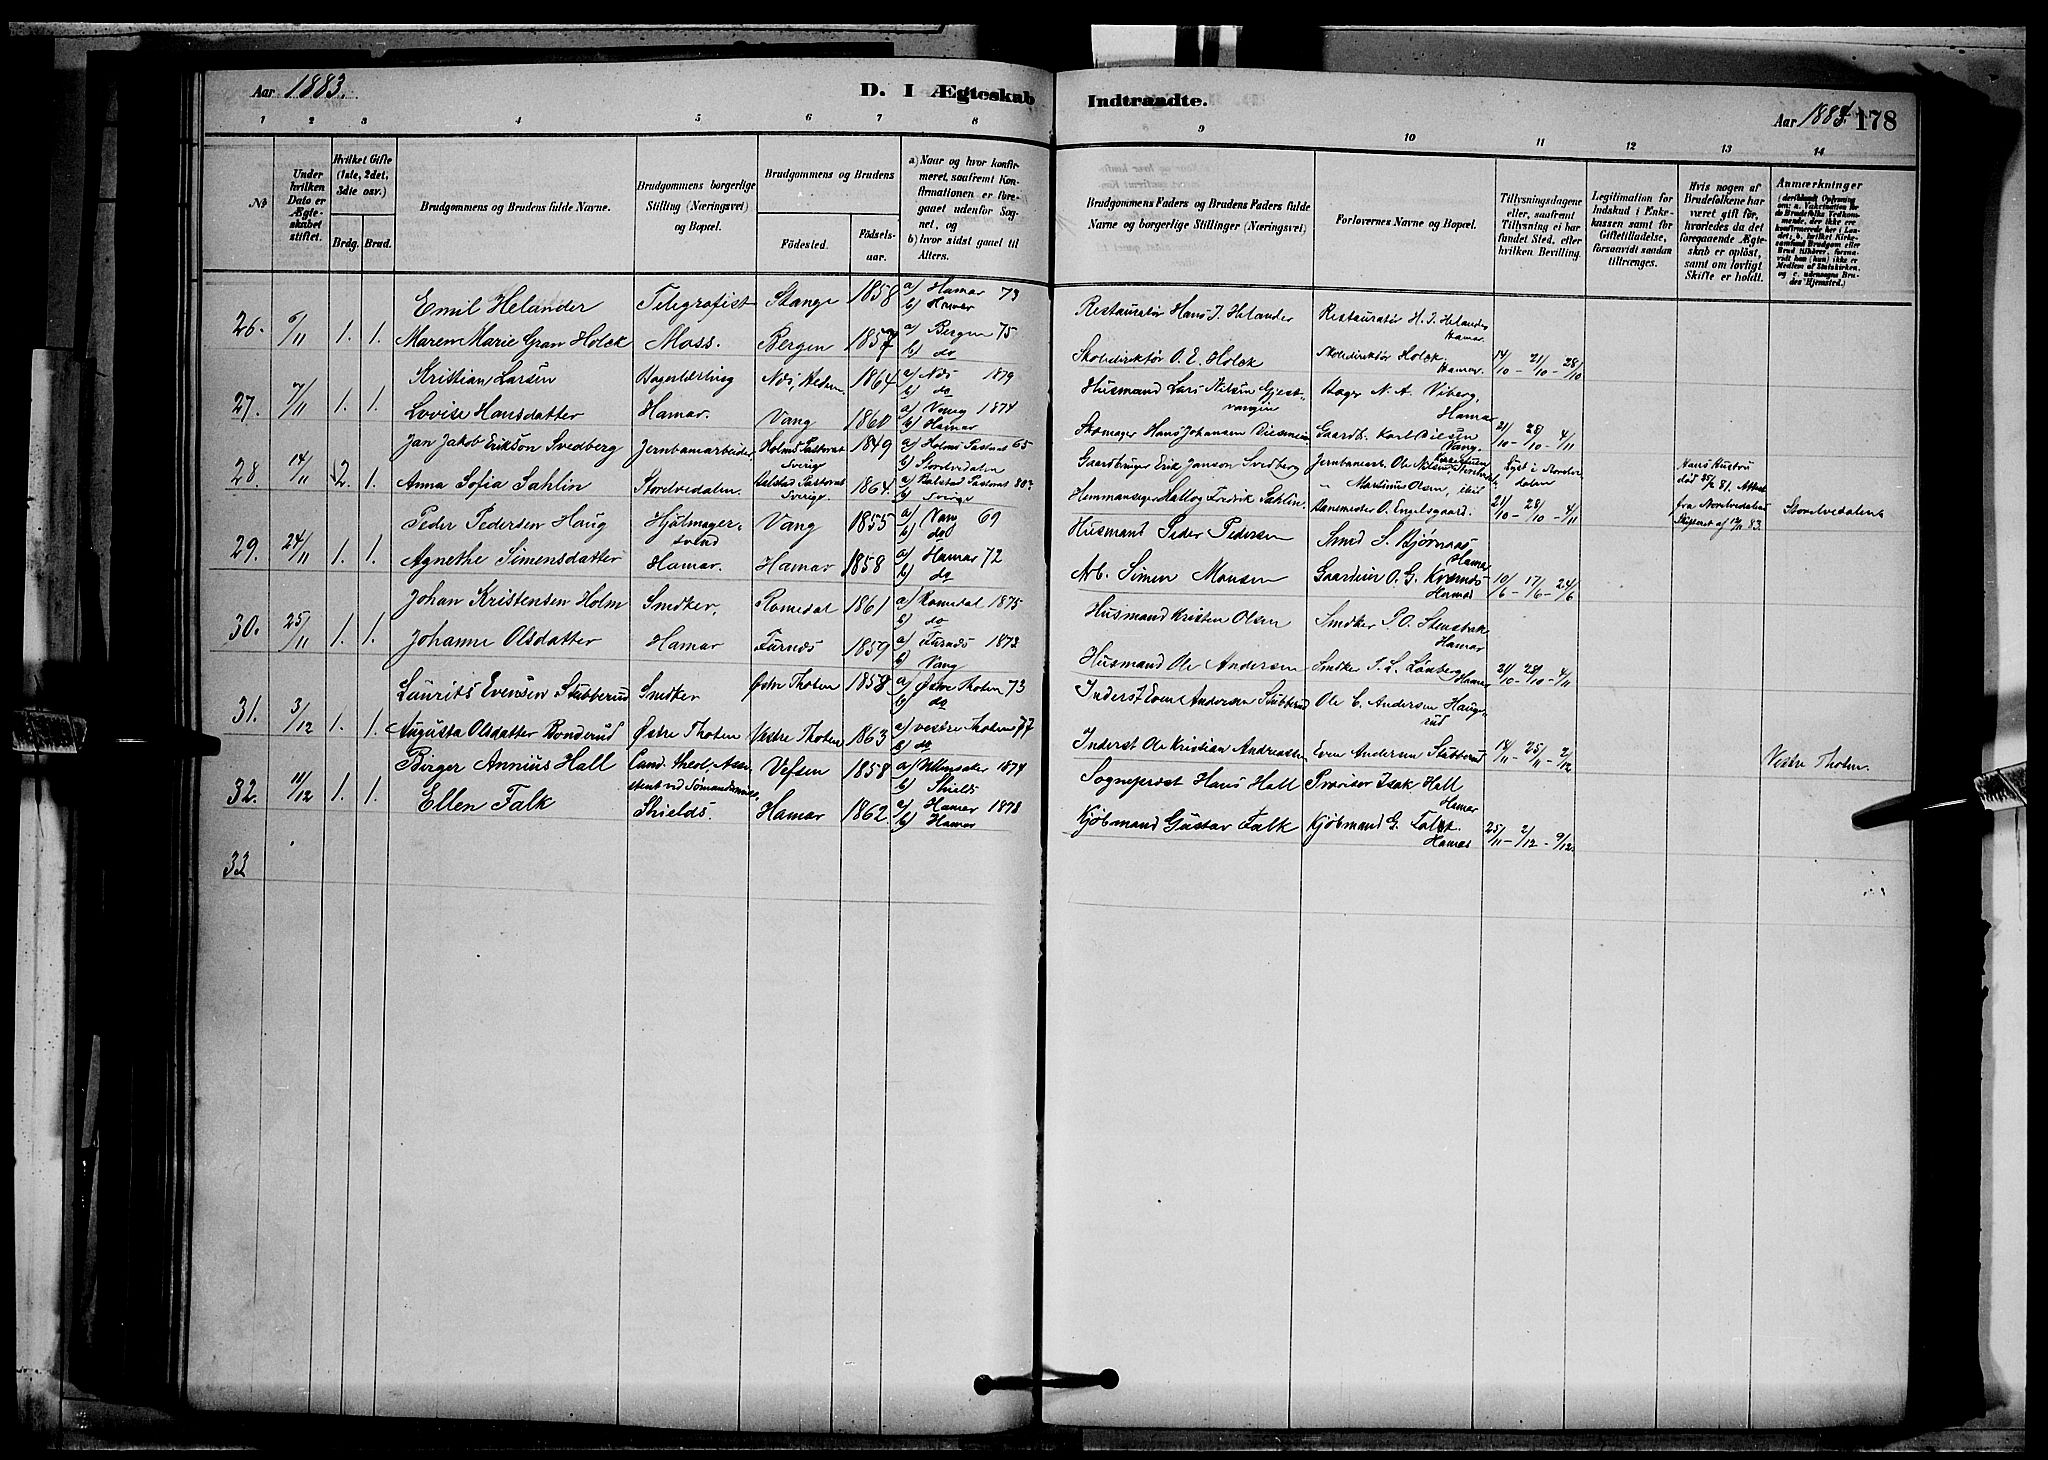 Aar 1883.
D. I Ægteskab
Indtraadte.
Aar 1883. 178
1 2 3 4 5 6 7 8
9 10 11 12 13 14
No
Under hvilken Dato er Ægteskabet stiftet.
Hvilket Gifte (1ste, 2det, 3die osv.)
Brdg. Brud.
Brudgommens og Brudens fulde Navne.
Brudgommens borgerlige Stilling (Næringsvei) og Bopæl.
Brudgommens og Brudens
Födested. Födselsaar.
a) Naar og hvor konfirmeret, saafremt Konfirmationen er foregaaet udenfor Sognet, og
b) hvor sidst gaaet til Alters.
Brudgommens Faders og Brudens Faders fulde Navne og borgerlige Stillinger (Næringsvei)
Forlovernes Navne og Bopæl.
Tillysningsdagene eller, saafremt Tillysning ei har fundet Sted, efter hvilken Bevilling.
Legitimation for Indskud i Enkekassen samt for Giftetilladelse, forsaavidt saadan tiltrænges.
Hvis nogen af Brudefolkene har været gift för, hvorledes da det foregaaende Ægteskab er oplöst, samt om lovligt Skifte er holdt.
Anmærkninger
26. 6/11 1. 1.
Emil Helander Telegrafist Stange 1858 a) Hamar 73 b) Hamar
Restauratør Hans J. Helander Restauratør H. J. Helander Hamar
Maren Marie Gran Holck Moss. Bergen 1857 a) Bergen 75 b) do
Skoledirektør O. E. Holck Skoledirektör Holck, Hamar. 14/10 - 21/10 - 28/10
27. 7/11 1. 1.
Kristian Larsen Bagerlærling Næs, Hedem. 1864 a) Næs 1879 b) do
Husmand Lars Nilsen Bager N. A. Viberg, Hamar
Lovise Hansdatter Hamar. Vang 1860 a) Vang 1874 b) Hamar
Skomager Hans Johansen Gaardbr. Karl Vang. 21/10 - 28/10 - 4/11
28. 14/11 2. 1.
Jan Jakob Erikson Svedberg Jernbanarbeider Holms Pastorat Sverige 1849 a) Holms Pastorat 65 b) Storelvedalen
Gaardbruger Erik Janson Svedberg Jernbanearb. Ole Nilsen Lyst i Storelvdalen
Hans Hustru død 81. Attest
Anna Sofia Sahlin Storelvedalen. Pastorat Sverige. 1864. a) Pastorat 80 b) Sverige
Hemmanseger Fredrik Sahlin Martinus Olsen, ibid Banemester O. Engelsgaard. 21/10 - 28/10 - 4/11
fra Nordre Skifteret af 83. Storelvedalen
29. 24/11 1. 1.
Peder Pedersen Haug Hjulmagersvend Vang 1855 a) Vang 69 b) do
Husmand Peder Pedersen Smed S. Bjørnaas Hamar
Agnethe Simensdatter Hamar. Hamar 1858 a) Hamar 72 b) do
Arb. Simen Monsen O. G. Hamar 10/6 - 17/6 - 24/6
30. 25/11 1. 1.
Johan Kristensen Holm Snedker, Romedal 1861 a) Romedal 1875 b) do
Husmand Kristen Olsen Snedker P. O. Stensbak Hamar
Johanne Olsdatter Hamar Furnes 1859 a) Furnes 1873 b) Vang
Husmand Ole Andersen Snedker Hamar 21/10 - 28/10 - 4/11
31. 3/12 1. 1.
Laurits Evensen Stubberud Snedker Østre Thoten 1858 a) Østre Thoten 73 b) do
Inderst Even Andersen Stubberud Ole C. Andersen Haugerud
Augusta Olsdatter Bonderud Østre Thoten Vestre Thoten 1863 a) vestre Thoten 77 b) do
Inderst Ole Kristian Andreassen Even Andersen Stubberud 18/11 - 25/11 - 2/12 Vestre Thoten.
32. 11/12 1. 1.
Berger Annius Hall Cand. theol. Assistent ved Sømandsmis. Vefsen 1858 a) Ullensaker 1874 b) Shields
Sogneprest Hans Hall Provisor Isak Hall Hamar
Ellen Falk Shields. Hamar 1862. a) Hamar 1878 b) Hamar
Kjøbmand Gustav Falk Kjøbmand G. Falk. Hamar 25/11 - 2/12 - 9/12
33